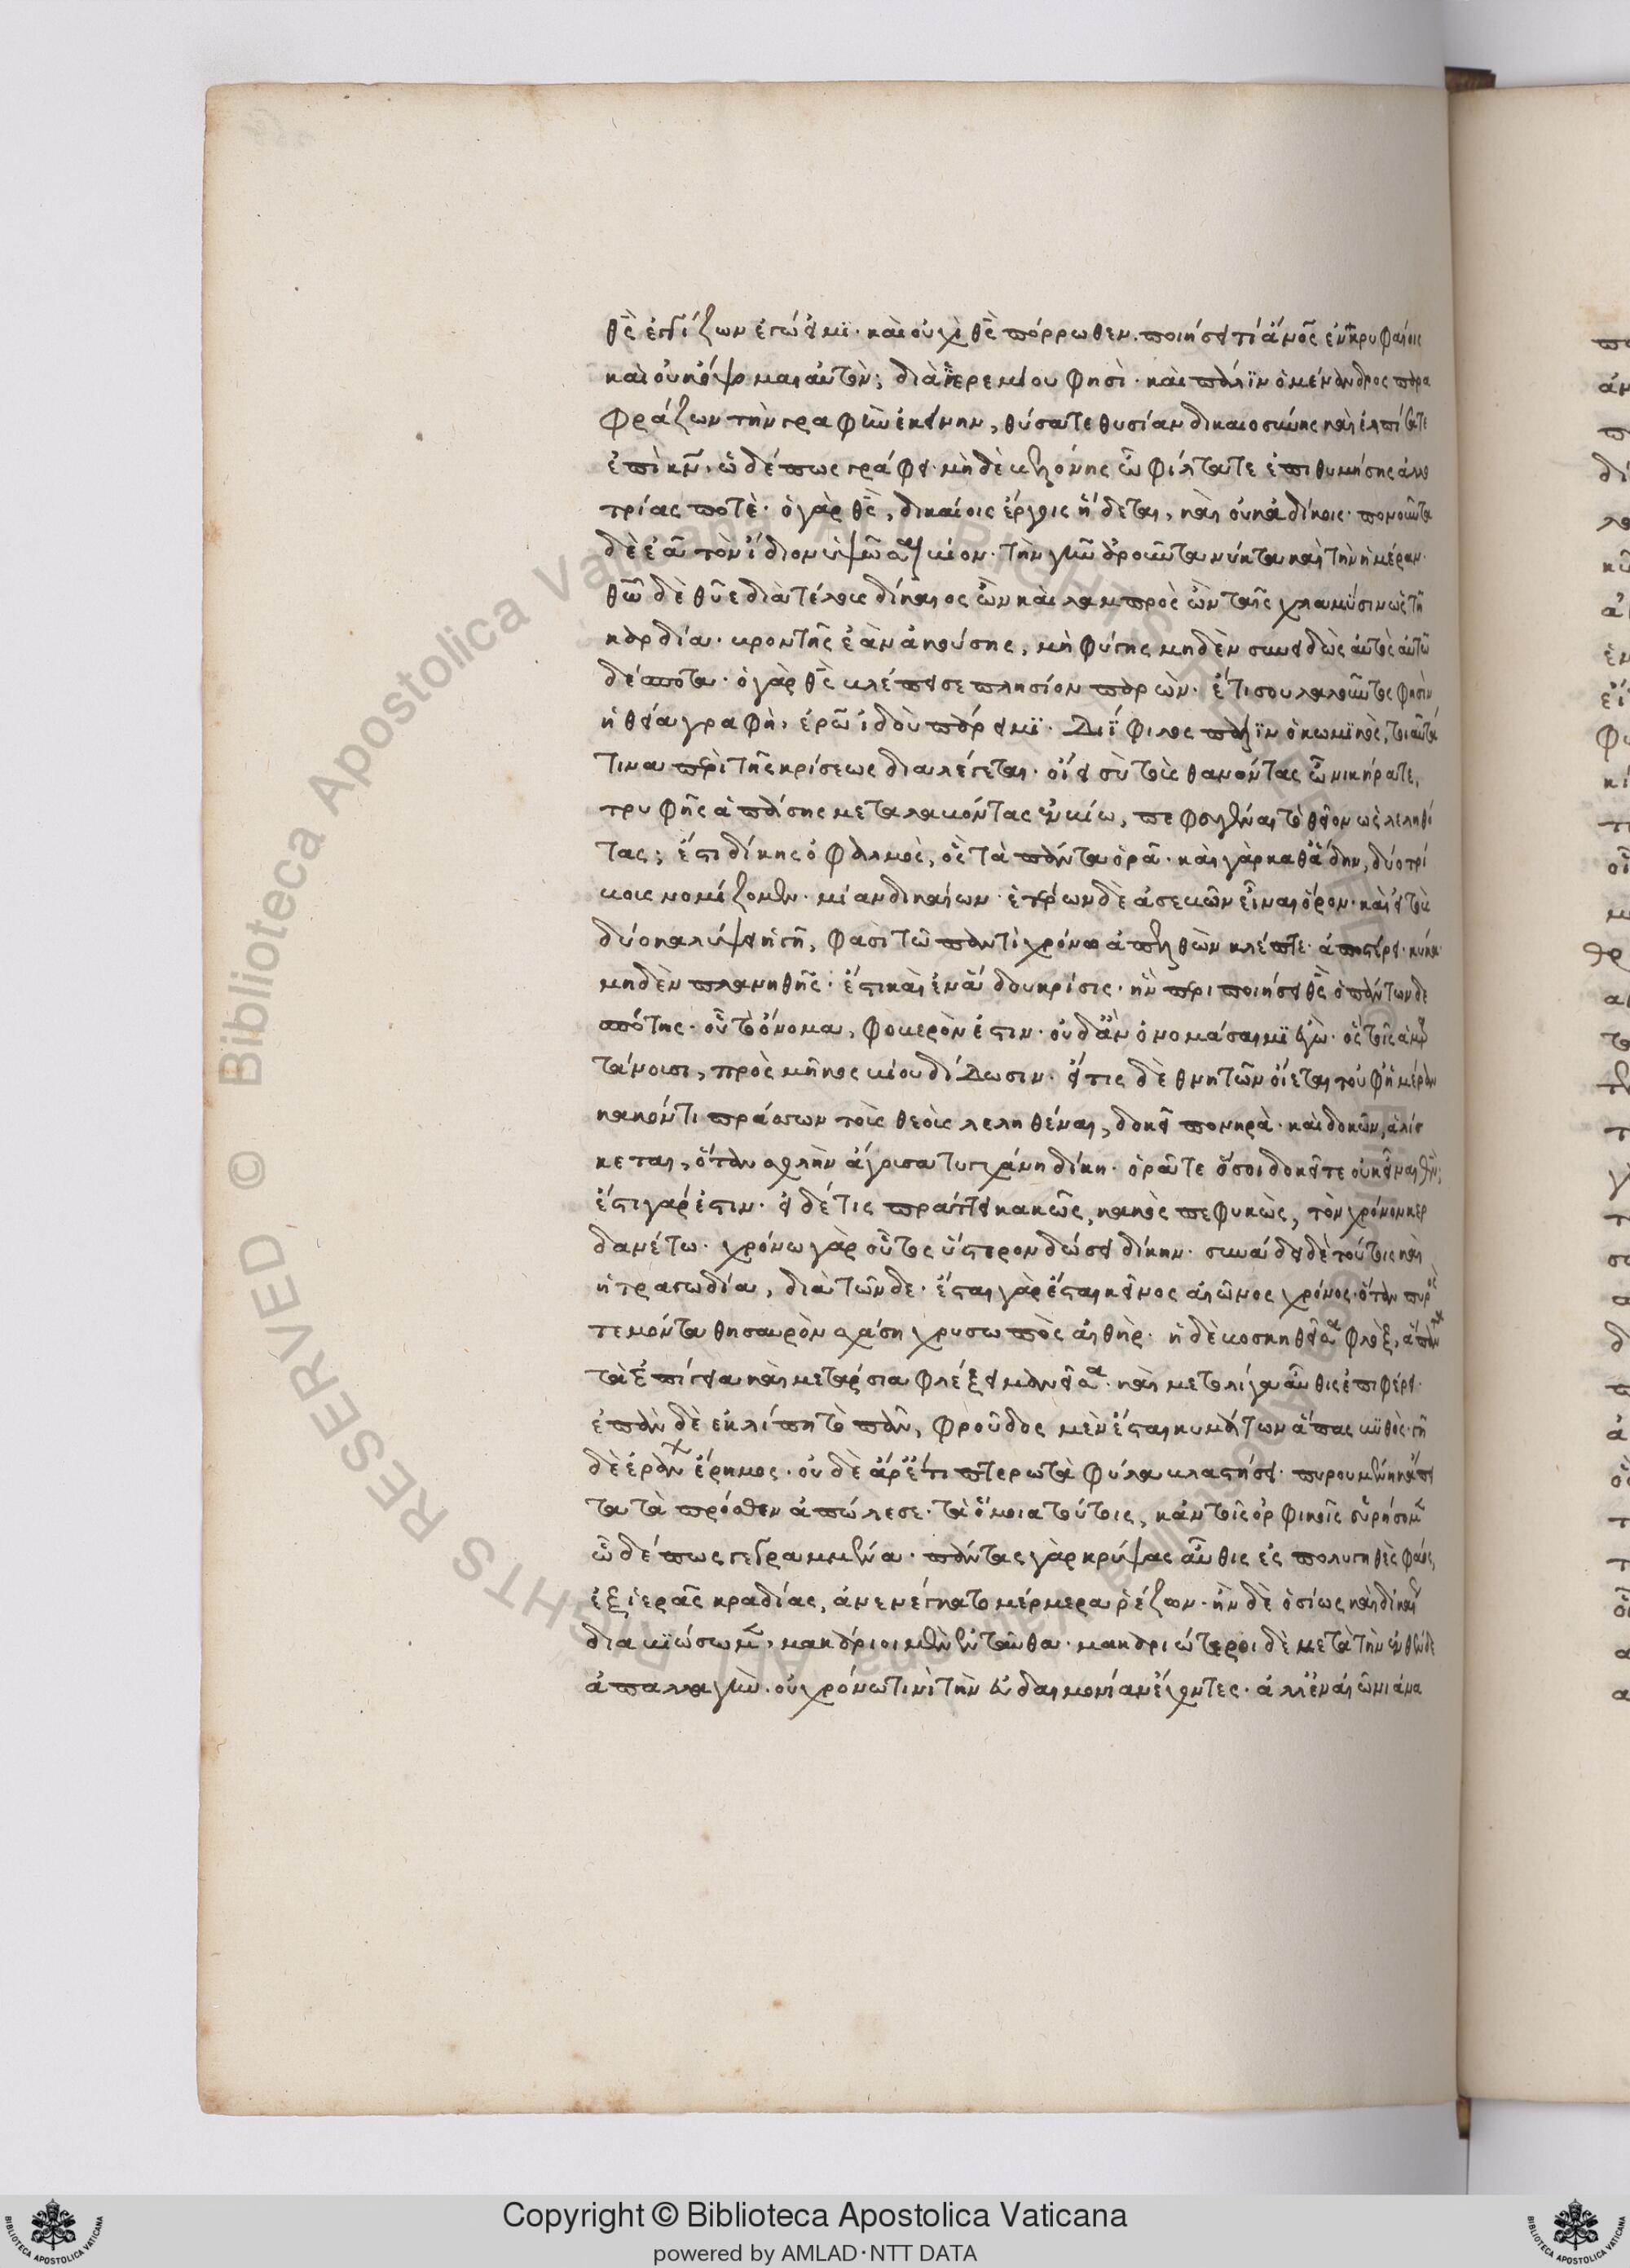 θς ἐγγίζων ἐγώ εἰμι· καὶ οὐχὶ θς πόρρωθεν. ποιήσει τί ἄνος ἐν κρυφαίοις
καὶ οὐκ ὄψομαι αὐτὸν; διὰ ἱερεμίου φησὶ· καὶ πάλιν ὁ μένανδρος παρα
φράζων τὴν γραφὴν ἐκείνην, θύσατε θυσίαν δικαιοσύνης καὶ ἐλπίσατε
ἐπὶ κν, ὧδέ πως γράφει· μὴ δὲ βελόνης ὦ φίλτατε ἐπιθυμήσῃς ἀλλο
τρίας ποτὲ· ὁ γὰρ θς, δικαίοις ἔργοις ἥδεται, καὶ οὐκ ἀδίκοις· πονοῦντα
δὲ ἐᾷ τὸν ἴδιον ὑψῶσαι βίον· τὴν γῆν ἀροῦντα νύκτα καὶ τὴν ἡμέραν·
θῶ δὲ θῦε διὰ τέλους δίκαιος ὢν καὶ λαμπρὸς ὢν ταῖς χλαμύσιν ὡς τῇ
καρδίᾳ· βροντῆς ἐὰν ἀκούσῃς, μὴ φύγῃς μηδὲν συνειδὼς αὐτὸς αὑτῷ
δέσποτα· ὁ γὰρ θς βλέπει σε πλησίον παρών· ἔτι σου λαλοῦντος φησὶν
ἡ θεία γραφὴ, ἐρῶ ἰδοὺ πάρειμι· Δίφιλος πάλιν ὁ κωμικὸς, τοιαῦτά
τινα περὶ τῆς κρίσεως διαλέγεται· οἴει σὺ τοὺς θανόντας ὦ νικήρατε,
τρυφῆς ἁπάσης μεταλαβόντας ἐν βίω, πεφευγέναι τὸ θεῖον ὡς λεληθό
τας; ἔστι δίκης ὀφθαλμὸς, ὃς τὰ πάντα ὁρᾷ· καὶ γὰρ καθ᾽ ᾅδην, δύο τρί
βους νομίζομεν· μίαν δικαίων· ἑτέρων δὲ ἀσεβῶν εἶναι ὅρον· καὶ εἰ τοὺς
δύο καλύψει ἡ γῆ, φασὶ τῷ παντὶ χρόνῳ ἀπελθὼν κλέπτε· ἀποστέρει· κύκα
μηδὲν πλανηθῇς· ἔστι καὶ ἐν ᾅδου κρίσις· ἥν περ ποιήσει θς ὁ πάντων δε
σπότης· οὗ τὸ ὄνομα, φοβερὸν ἐστιν· οὐδ᾽ ἂν ὀνομάσαιμι ἐγὼ· ὃς τοῖς ἁμαρ
τάνουσι, πρὸς μῆκος βίου δίδωσιν· εἴ τις δὲ θνητῶν οἴεται τοὐφ᾽ ἡμέραν
κακόν τι πράσσων τοὺς θεοὺς λεληθέναι, δοκεῖ πονηρὰ· καὶ δοκῶν, ἁλίσ
κεται, ὅταν σχολὴν ἄγουσα τυγχάνῃ δίκη· ὁρᾶτε ὅσοι δοκεῖτε οὐκ εἶναι θν;
ἔστι γάρ ἐστιν· εἰ δέ τις πράττει κακῶς, κακὸς πεφυκὼς, τὸν χρόνον κερ
δανέτω· χρόνω γὰρ οὗτος ὕστερον δώσει δίκην· συνᾴδει δὲ τούτοις καὶ
ἡ τραγωδία, διὰ τῶνδε· ἔσται γὰρ ἔσται κεῖνος αἰῶνος χρόνος· ὅταν πυρὸς
γέμοντα θησαυρὸν σχάσῃ χρυσωπὸς αἰθὴρ· ἡ δὲ βοσκηθεῖσα φλὸξ, ἅπαντα
τὰ ἐπίγεια καὶ μετάρσια φλέξει μανεῖσα· καὶ μετ᾽ ὀλίγα αὖθις ἐπιφέρει·
ἐπὰν δὲ ἐκλίπῃ τὸ πᾶν, φροῦδος μὲν ἔσται κυμάτων ἅπας βυθὸς· γῆ
δὲ ἑδράνων ἔρημος· οὐδὲ ἀὴρ ἔτι πτερωτὰ φύλα βλαστήσει· πυρουμένη κἄπει
τα τὰ πρόσθεν ἀπώλεσε· τὰ ὅμοια τούτοις, κἀν τοῖς ὀρφικοῖς εὑρήσομεν
ὧδέ πως γεγραμμένα· πάντας γὰρ κρύψας αὖθις ἐς πολυγηθὲς φάος,
ἐξ ἱερᾶς κραδίας, ἀνενέγκατο μέρμερα ῥέζων· ἢν δὲ ὁσίως καὶ δικαίως
διαβιώσωμεν, μακάριοι μὲν ἐνταῦθα· μακαριώτεροι δὲ μετὰ τὴν ἐνθένδε
ἀπαλλαγὴν. οὐ χρόνω τινὶ τὴν εὐδαιμονίαν ἔχοντες· ἀλλ᾽ ἐν αἰῶνι ἀνα